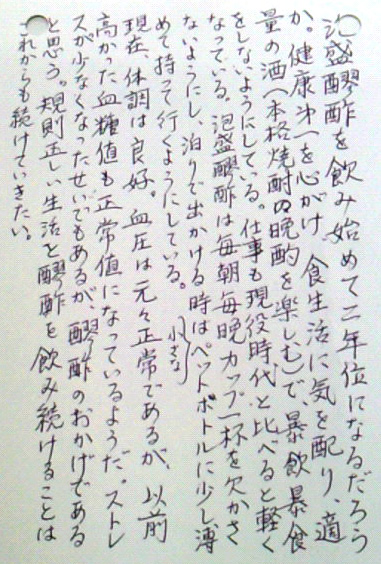 泡盛醪酢を飲み始めて二年位になるだろう
か。健康オ一を心がけ、食生活に気を配り、適
量の酒(本格焼酎の晩酌を楽しむ)で、暴飲暴食
をしないようにしている。仕事も現役時代と比べると軽く
なっている。泡盛醪酢は毎朝毎晩カップ一杯を欠かさ
ないようにし、泊りで出かける時は。ペットボトルに少し薄
小さな
めて持って行くようにしている。
現在、体調は良好。血圧は元々正常であるが、以前
高かった血糖値も正常値になっているようだ。ストレ
スが少なくなったせいでもあるが醪酢のおかげである
と思う。規則正しい生活と醪酢を飲み続けることは
これからも続けていきたい。